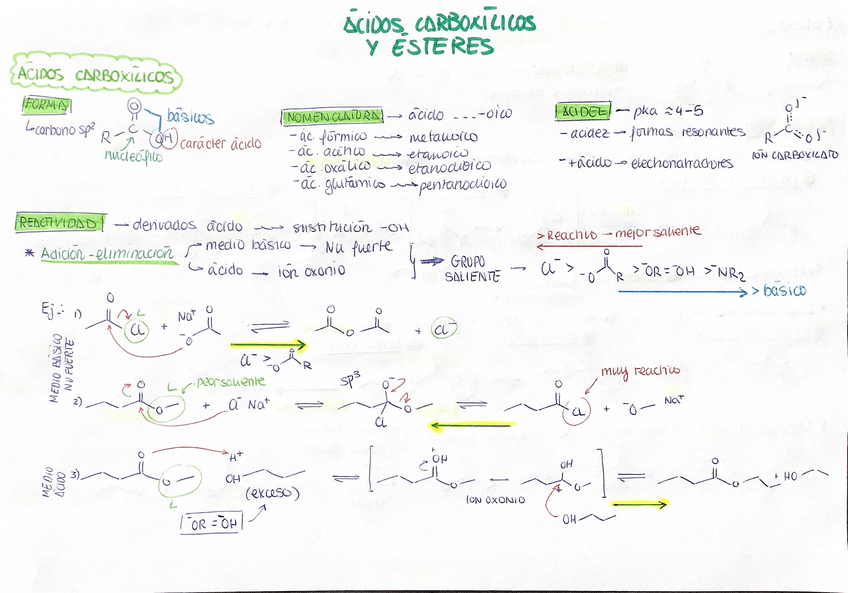 ÁCIDOS CARBOXÍLICOS
Y ÉSTERES
ÁCIDOS CARBOXÍLICOS
FORMA
carbono sp²
básicos
R C O OH
carácter ácido
nucleófilo
NOMENCLATURA → ácido ....-oico
-ác. fórmico → metanoico
-ác. acético → etanoico
-ác. oxálico → etanodioico
-ác. glutámico → pentanodioico
ACIDEZ — pka ≈ 4-5
-acidez → formas resonantes
-+ácido → electronatractores
R C O δ⁻ O δ⁻
IÓN CARBOXILATO
REACTIVIDAD → derivados ácido → sustitución -OH
* Adición-eliminación
medio básico → Nu fuerte
ácido → ión oxonio
⇒ GRUPO
SALIENTE →
> Reactivo - mejor saliente
Cl⁻ > ⁻O O R > ⁻OR = ⁻OH > ⁻NR2
> básico
MEDIO BÁSICO
NU FUERTE
Ej.: 1) O Cl L + Na⁺ ⁻O O ⇌ O O O + Cl⁻
Cl⁻ > ⁻O O R
2) O O L peor saliente + Cl⁻ Na⁺ ⇌ sp³ O⁻ O Cl ⇌ O Cl muy reactivo + ⁻O Na⁺
MEDIO
ÁCIDO
3) O O L H⁺ OH ⇌ ⁺OH O ↔ OH O + ⇌ O O + HO
(exceso)
IÓN OXONIO
OH
⁻OR = ⁻OH